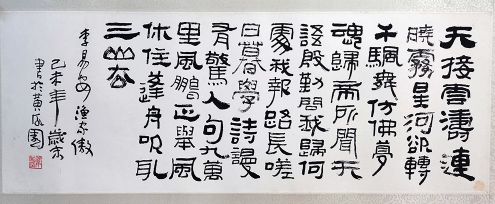 天接雲濤連
曉霧星河欲轉
千颿舞仿佛夢
魂歸帝所聞天
語殷勤問我歸何
處我報路長嗟
日暮學詩謾
有驚人句九萬
里風鵬正舉風
休住蓬舟吹取
三山去
李易安漁家傲
己未年歲末
書於黃瓜園